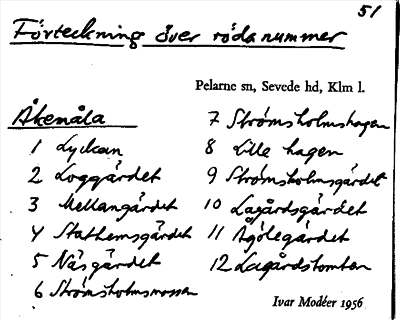 51
Förteckning över röda nummer
Pelarne sn, Sevede hd, Klm l.
Åkenäla
1 Lyckan
2 Loggärdet
3 Mellangärdet
4 Stathemsgärdet
5 Näsgärdet
6 Strömsholmsmossen
7 Strömsholmshagen
8 Lille hagen
9 Strömsholmsgärdet
10 Lagårdsgärdet
11 Ågölegärdet
12 Lagårdstomten
Ivar Modéer 1956